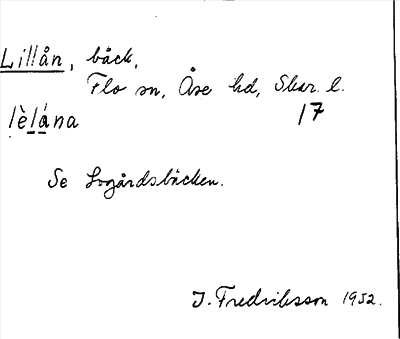 Lillån, bäck,
Flo sn, Åse hd, Skar. l.
lèlȧ́na 17
Se Logårdsbäcken.
J. Fredriksson 1952.